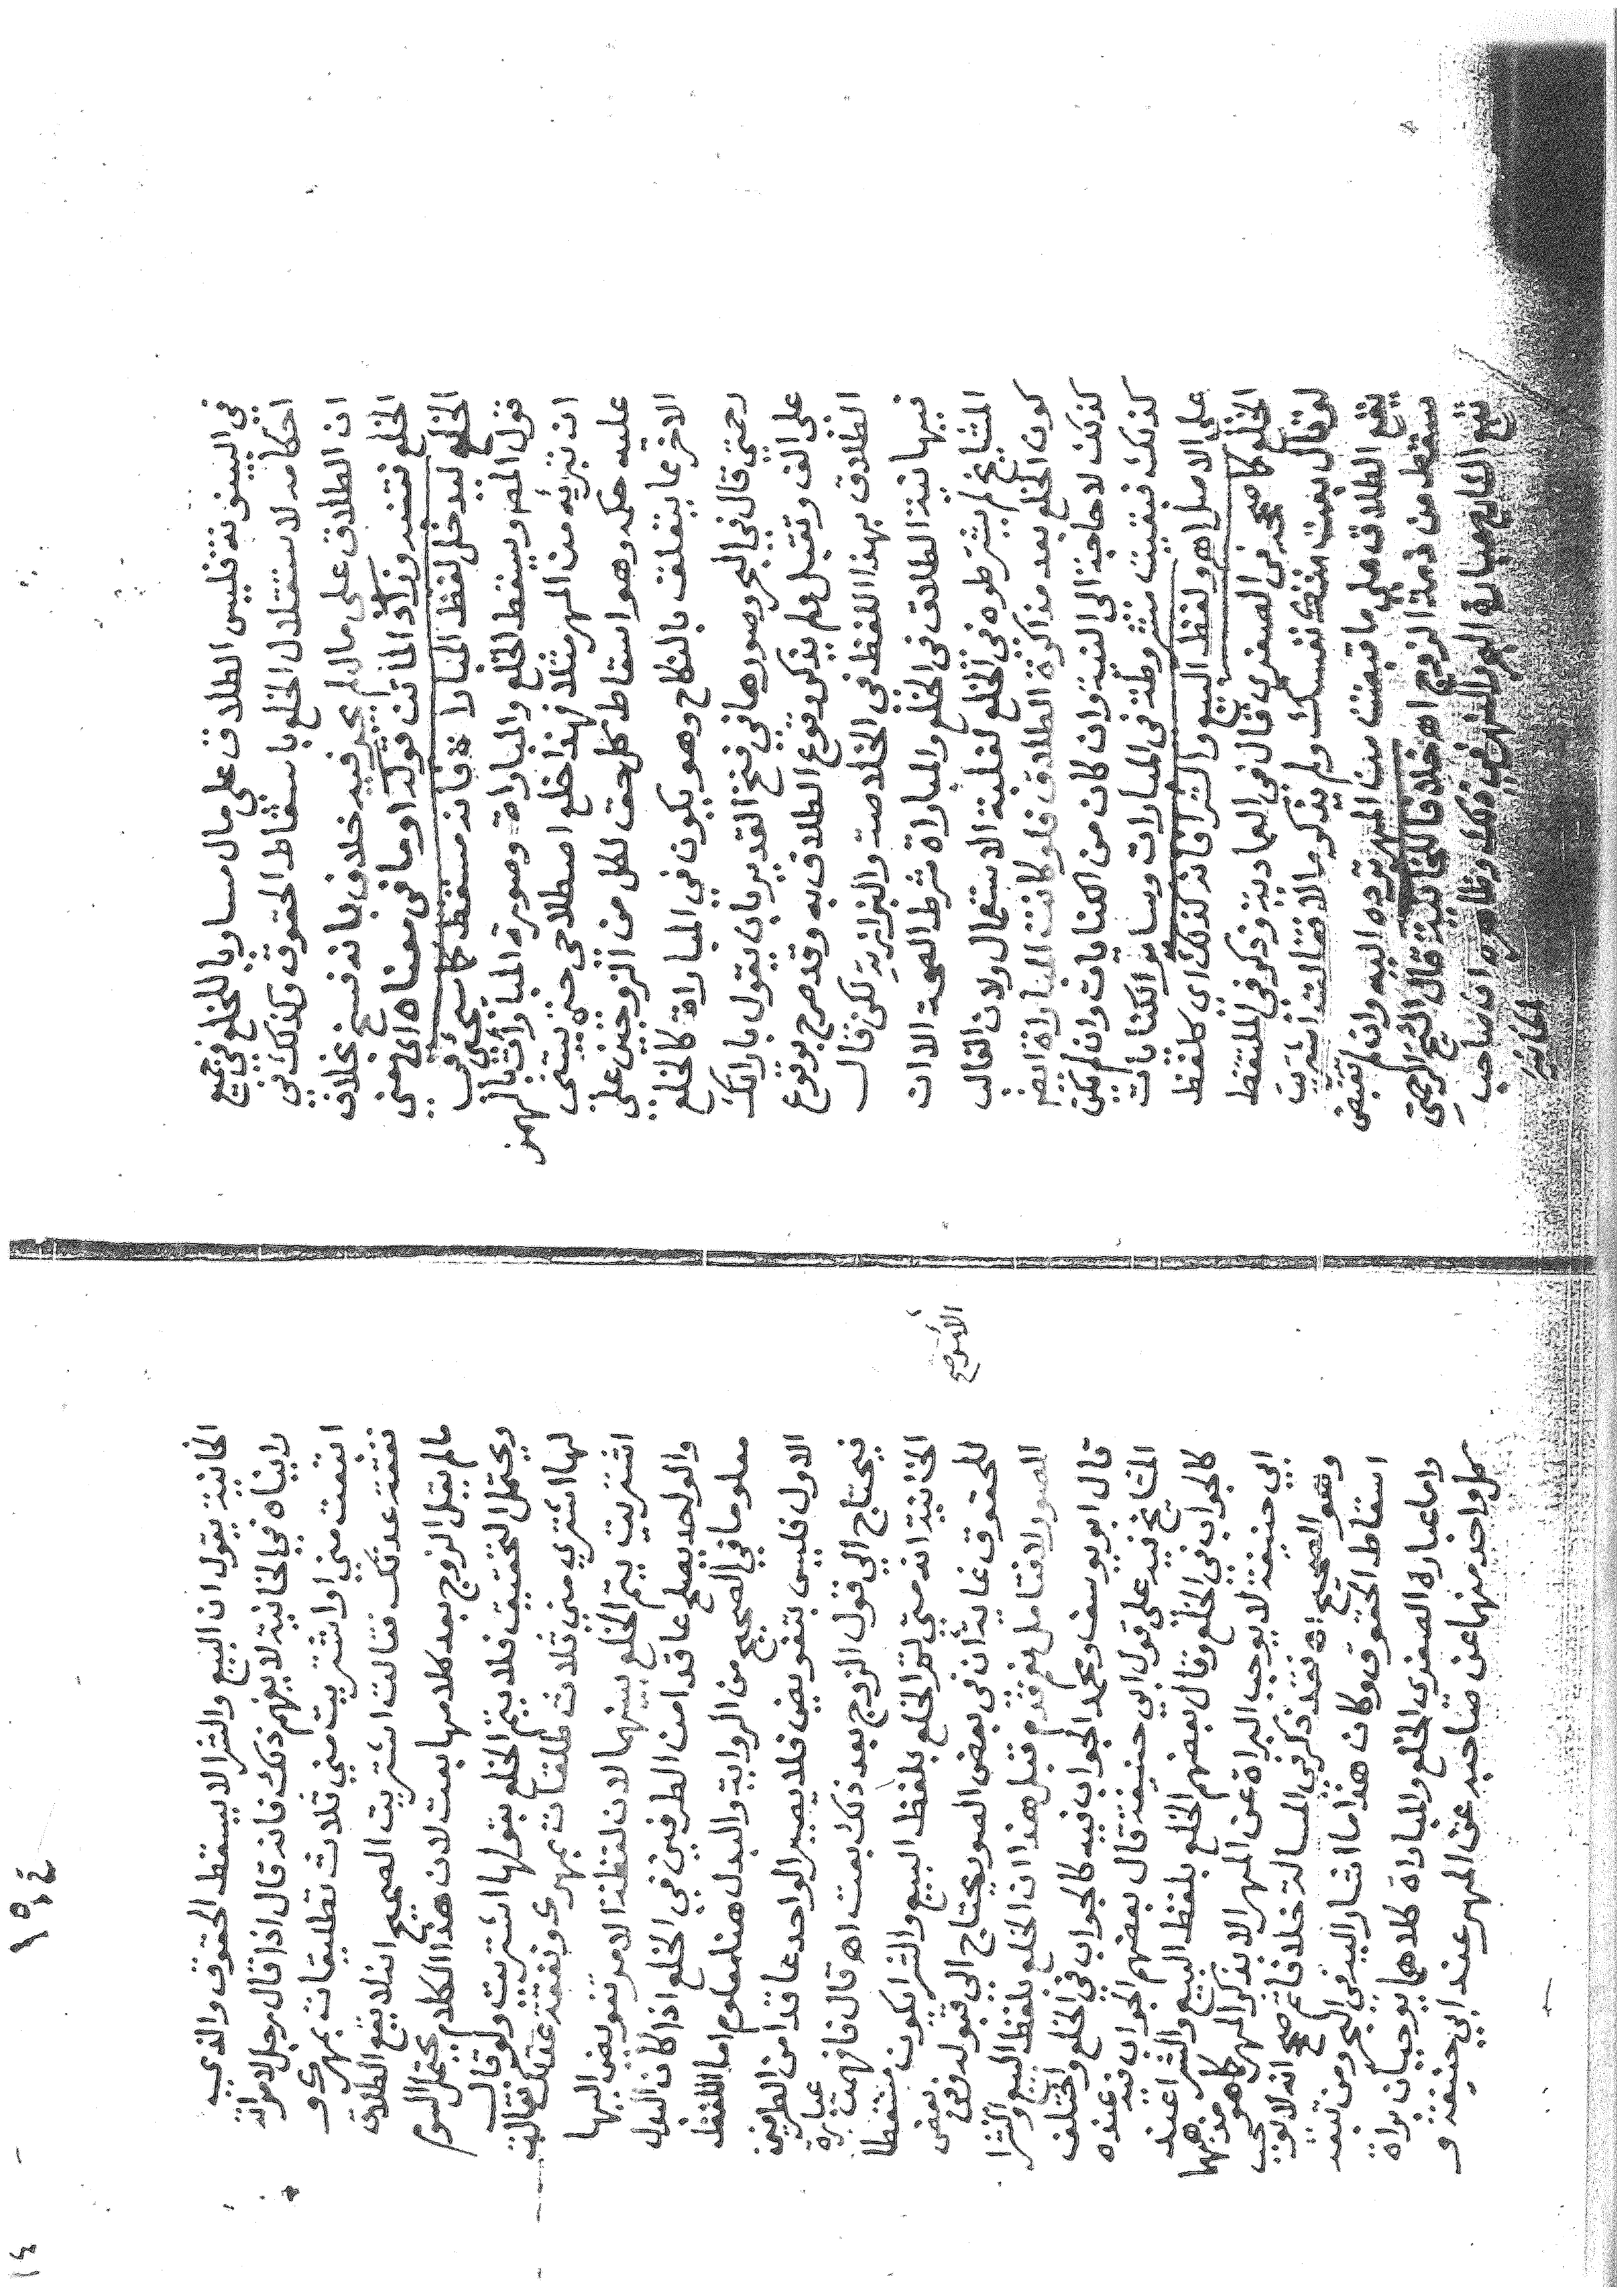 في البينونة فليس الطلاق على مال مساويا للخلع في جميع
احكامه لاستقلال الخلع باسقاط الحقوق وكذلك في
ان الطلاق على مال لم يجر فيه خلاف بانه فسخ بخلاف
الخلع فتنبه وزاد الماتن قوله او ما في معناه اي معنى
الخلع ليدخل لفظ المباراة فانه مسقط كما سيجئ في
قول المص ويسقط الخلع والمباراة وصورة المبارأة بالهمز
ان تبريه من المهر مثلا فهذا خلع اصطلاحي حتى يبتنى
عليه حكمه وهو اسقاط كل حق لكل من الزوجين على
الاخر مما يتعلق بالنكاح وهو يكون في المباراة كالخلع
رحمتي قال في البحر وصورها في فتح القدير بان يقول بارأتك
على الف وتقبل ولم يذكر وقوع الطلاق به وقد صرح بوقوع
الطلاق بهذا اللفظ في الخلاصة والبزازية لكن قال
فيها نية الطلاق في الخلع والمباراة شرط الصحة الا ان
المشايخ لم يشترطوه في الخلع لغلبة الاستعمال ولان الغالب
كون الخلع بعد مذاكرة الطلاق فلو كانت المباراة ايضا
كذلك لا حاجة الى النية وان كان من الكنايات وان لم يكن
كذلك فبقيت مشروطة في المبارات وساير الكنايات
على الاصل اهـ ولفظ البيع والشرا فانه كذلك اي كلفظ
الخلع كما صححه في الصغرى قال في العمادية وذكر في الملتقط
لو قال بعت منك نفسك ولم يذكر مالا فقالت اشتريت
يقع الطلاق على ما قبضت من المهر ترده اليه وان لم تقبض
سقط من ذمة الزوج اهـ خلافا للخانية قال الشيخ الرحمتي
تتبع الشارح عبارة البحر والنهر في ذلك وظاهره ان صاحب
الخانية
الخانية يقول ان البيع والشرا لا يسقط الحقوق والذي
رايناه في الخانية لا يفهم ذلك فانه قال اذا قال رجل لامراته
ابتعت مني او اشتريت مني ثلاث تطليقات بمهرك و
نفقة عدتك فقالت اشتريت الصحيح انه لا يقع الطلاق
ما لم يقبل الزوج بعد كلامها بعت لان هذا الكلام يحتمل السوم
ويحتمل التحقيق فلا يتم الخلع بقولها اشتريت ولو قال
لها اشتري مني ثلاث طلقات بمهرك ونفقة عدتك فقالت
اشتريت يتم الخلع بينهما لان لفظة الامر تفويض اليها
والواحد يصلح عاقدا من الطرفين في الخلع اذا كان البدل
معلوما في الصحيح من الرواية والبدل هنا معلوم اما اللفظ
الاول فليس بتفويض فلا يصير الواحد عاقدا من الطرفين
فيحتاج الى قول الزوج بعد ذلك بعت اهـ قال فافهمت عبارة
الخانية انه متى تم الخلع بلفظ البيع والشرا يكون مسقطا
للحقوق غايته ان في بعض الصور يحتاج الى قبوله وفي بعض
الصور لا فتامل نعم قدم قبل هذا ان الخلع بلفظ البيع والشرا
قال ابو يوسف ومحمد الجواب فيه كالجواب في الخلع واختلف
المشايخ فيه على قول ابي حنيفة قال بعضهم الجواب فيه عنده
كالجواب في الخلع وقال بعضهم الخلع بلفظ البيع والشرا عند
ابي حنيفة لا يوجب البراة عن المهر الا بذكر المهر كما هو مذهبهما
وهو الصحيح اهـ فقد ذكر في المسالة خلافا ثم صحح انه لا يوجب
اسقاط الحقوق وكان هذا ما اشار اليه في البحر ومن تبعه
واما عبارة الصغرى الخلع والمباراة كلاهما يوجبان براة
كل واحد منهما عن صاحبه عن المهر عند ابي حنيفة و